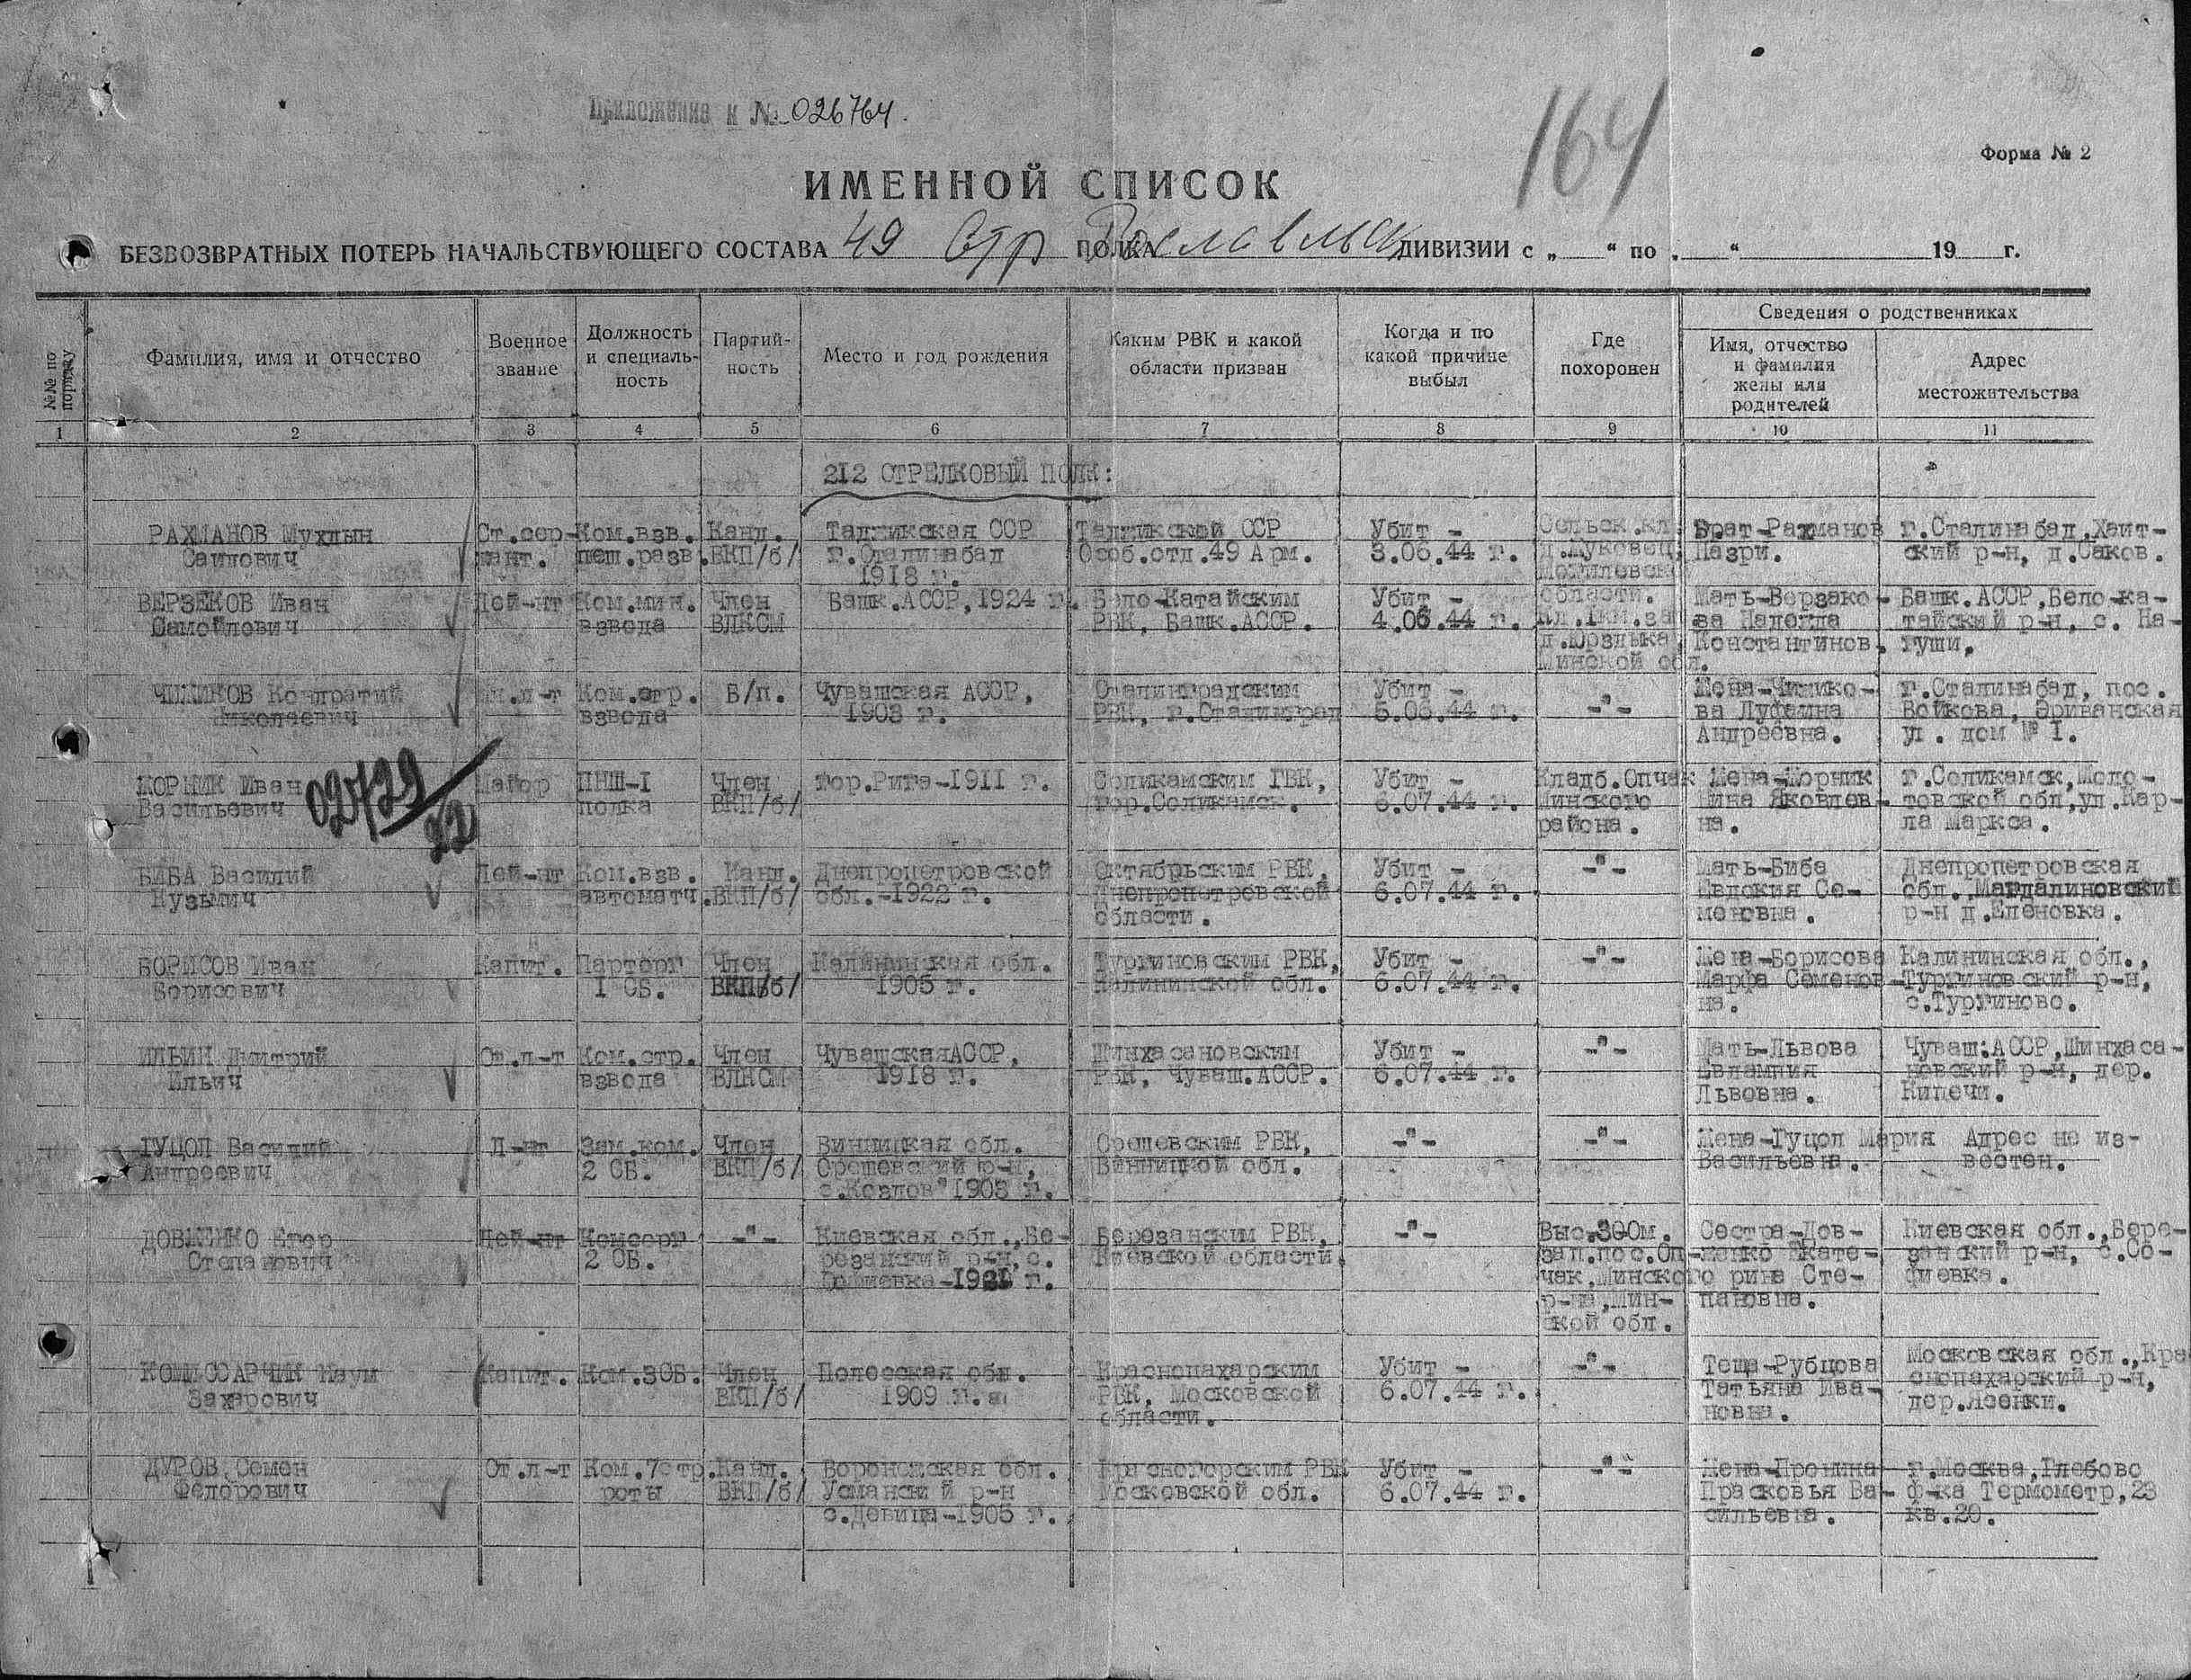 Приложение к № 026764.
164
Форма № 2
ИМЕННОЙ СПИСОК
БЕЗВОЗВРАТНЫХ ПОТЕРЬ НАЧАЛЬСТВУЮЩЕГО СОСТАВА 49 Стр ПОЛКА Рославльск ДИВИЗИИ с „ “ по „ “ 19 г.
№№ по порядку
Фамилия, имя и отчество
Военное звание
Должность и специаль-ность
Партий-ность
Место и год рождения
Каким РВК и какой области призван
Когда и по какой причине выбыл
Где похоронен
Сведения о родственниках
Имя, отчество и фамилия жены или родителей
Адрес местожительства
1 2 3 4 5 6 7 8 9 10 11
212 СТРЕЛКОВЫЙ ПОЛК:
РАХМАНОВ Мухдын Ст.сер- Ком.взв. Канд. Таджикская ССР Таджикской ССР Убит - Сельск.кл. Брат-Рахманов г.Сталинабад,Хаит-
Саидович жант. пеш.разв. ВКП/б/ г.Сталинабад Особ.отд.49 Арм. 3.06.44 г. д.Луковец, Назри. ский р-н, д.Саков.
1918 г. Могилевск
ВЕРЗЕКОВ Иван Лей-нт Ком.мин. Член Башк.АССР,1924 г. Бело-Катайским Убит - области. Мать-Верзако- Башк.АССР,Бело-ка-
Самойлович взвода ВЛКСМ РВК, Башк.АССР. 4.06.44 г. Кл.1км.за ва Надежда тайский р-н, с. На-
д.Юрздыка Константинов. гуши.
Минской обл.
ЧИМИКОВ Кондратий Мл.л-т Ком.стр. Б/п. Чувашская АССР, Сталинградским Убит - -"- Жена-Чимико- г.Сталинабад, пос.
Николаевич взвода 1903 г. РВК, г.Сталинград 5.06.44 г. ва Луфаина Войкова, Эриванская
Андреевна. ул. дом № 1.
КОРНИК Иван 02729 Майор ПНШ-1 Член гор.Рига-1911 г. Соликамским ГВК, Убит - Кладб.Опчак Жена-Корник г.Соликамск,Моло-
Васильевич 22 полка ВКП/б/ гор.Соликамск. 6.07.44 г. Минского Нина Яковлев- товской обл,ул.Кар-
района. на. ла Маркса.
БИБА Василий Лей-нт Ком.взв. Канд. Днепропетровской Октябрьским РВК, Убит - -"- Мать-Биба Днепропетровская
Кузьмич автоматч. ВКП/б/ обл.-1922 г. Днепропетровской 6.07.44 г. Евдокия Се- обл.,Магдалиновский
области. меновна. р-н д.Еленовка.
БОРИСОВ Иван Капит. Парторг Член Калининская обл. Тургиновским РВК, Убит - -"- Жена-Борисова Калининская обл.,
Борисович 1 СБ. ВКП/б/ 1905 г. Калининской обл. 6.07.44 г. Марфа Семенов- Тургиновский р-н,
на. с.Тургиново.
ИЛЬИН Дмитрий Ст.л-т Ком.стр. Член ЧувашскаяАССР, Шинхасановским Убит - -"- Мать-Львова Чуваш.АССР,Шинхаса-
Ильич взвода ВЛКСМ 1918 г. РВК, Чуваш.АССР. 6.07.44 г. Евлампия новский р-н, дер.
Львовна. Кипечи.
ГУЦОЛ Василий Л-нт Зам.ком. Член Винницкая обл. Орешевским РВК, -"- -"- Жена-Гуцол Мария Адрес не из-
Андреевич 2 СБ. ВКП/б/ Орешевский р-н, Винницкой обл. Васильевна. вестен.
с.Козлов 1903 г.
ДОВЖЕНКО Егор Лей-нт Комсорг -"- Киевская обл.,Бе- Березанским РВК, -"- Выс.300м. Сестра-Дов- Киевская обл.,Бере-
Степанович 2 СБ. резанский р-н, с. Киевской области. зап.пос.Оп- женко Екате- занский р-н, с.Со-
1921 г. чак,Минского рина Сте- фиевка.
р-на,Мин- пановна.
ской обл.
КОМИССАРЧИК Наум Капит. Ком.3СБ. Член Полесская обл. Краснопахарским Убит - -"- Теща-Рубцова Московская обл.,Кра
Захарович ВКП/б/ 1909 г. РВК, Московской 6.07.44 г. Татьяна Ива- снопахарский р-н,
области. новна. дер.Ясенки.
ДУРОВ Семен Ст.л-т Ком.7стр. Канд. Воронежская обл. Красногорским РВК Убит - -"- Жена-Пронина г.Москва,Глебово
Федорович роты ВКП/б/ Усманский р-н Московской обл. 6.07.44 г. Прасковья Ва- ф-ка Термометр,23
с.Девица-1905 г. сильевна. кв.20.